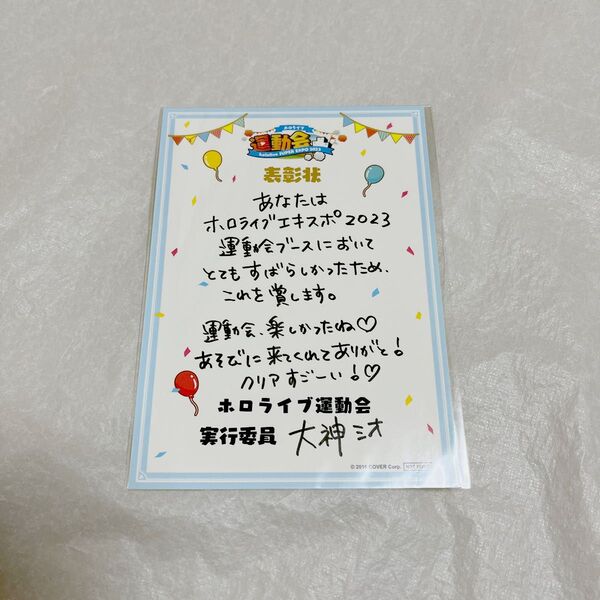 ホロライブ
運動会
hololive SUPER EXPO 2023
表彰状
あなたは
ホロライブエキスポ2023
運動会ブースにおいて
とてもすばらしかったため、
これを賞します。
運動会、楽しかったね♡
あそびに来てくれてありがと!
クリアすごーい!♡
ホロライブ運動会
実行委員 大神ミオ
© 2016 COVER Corp.